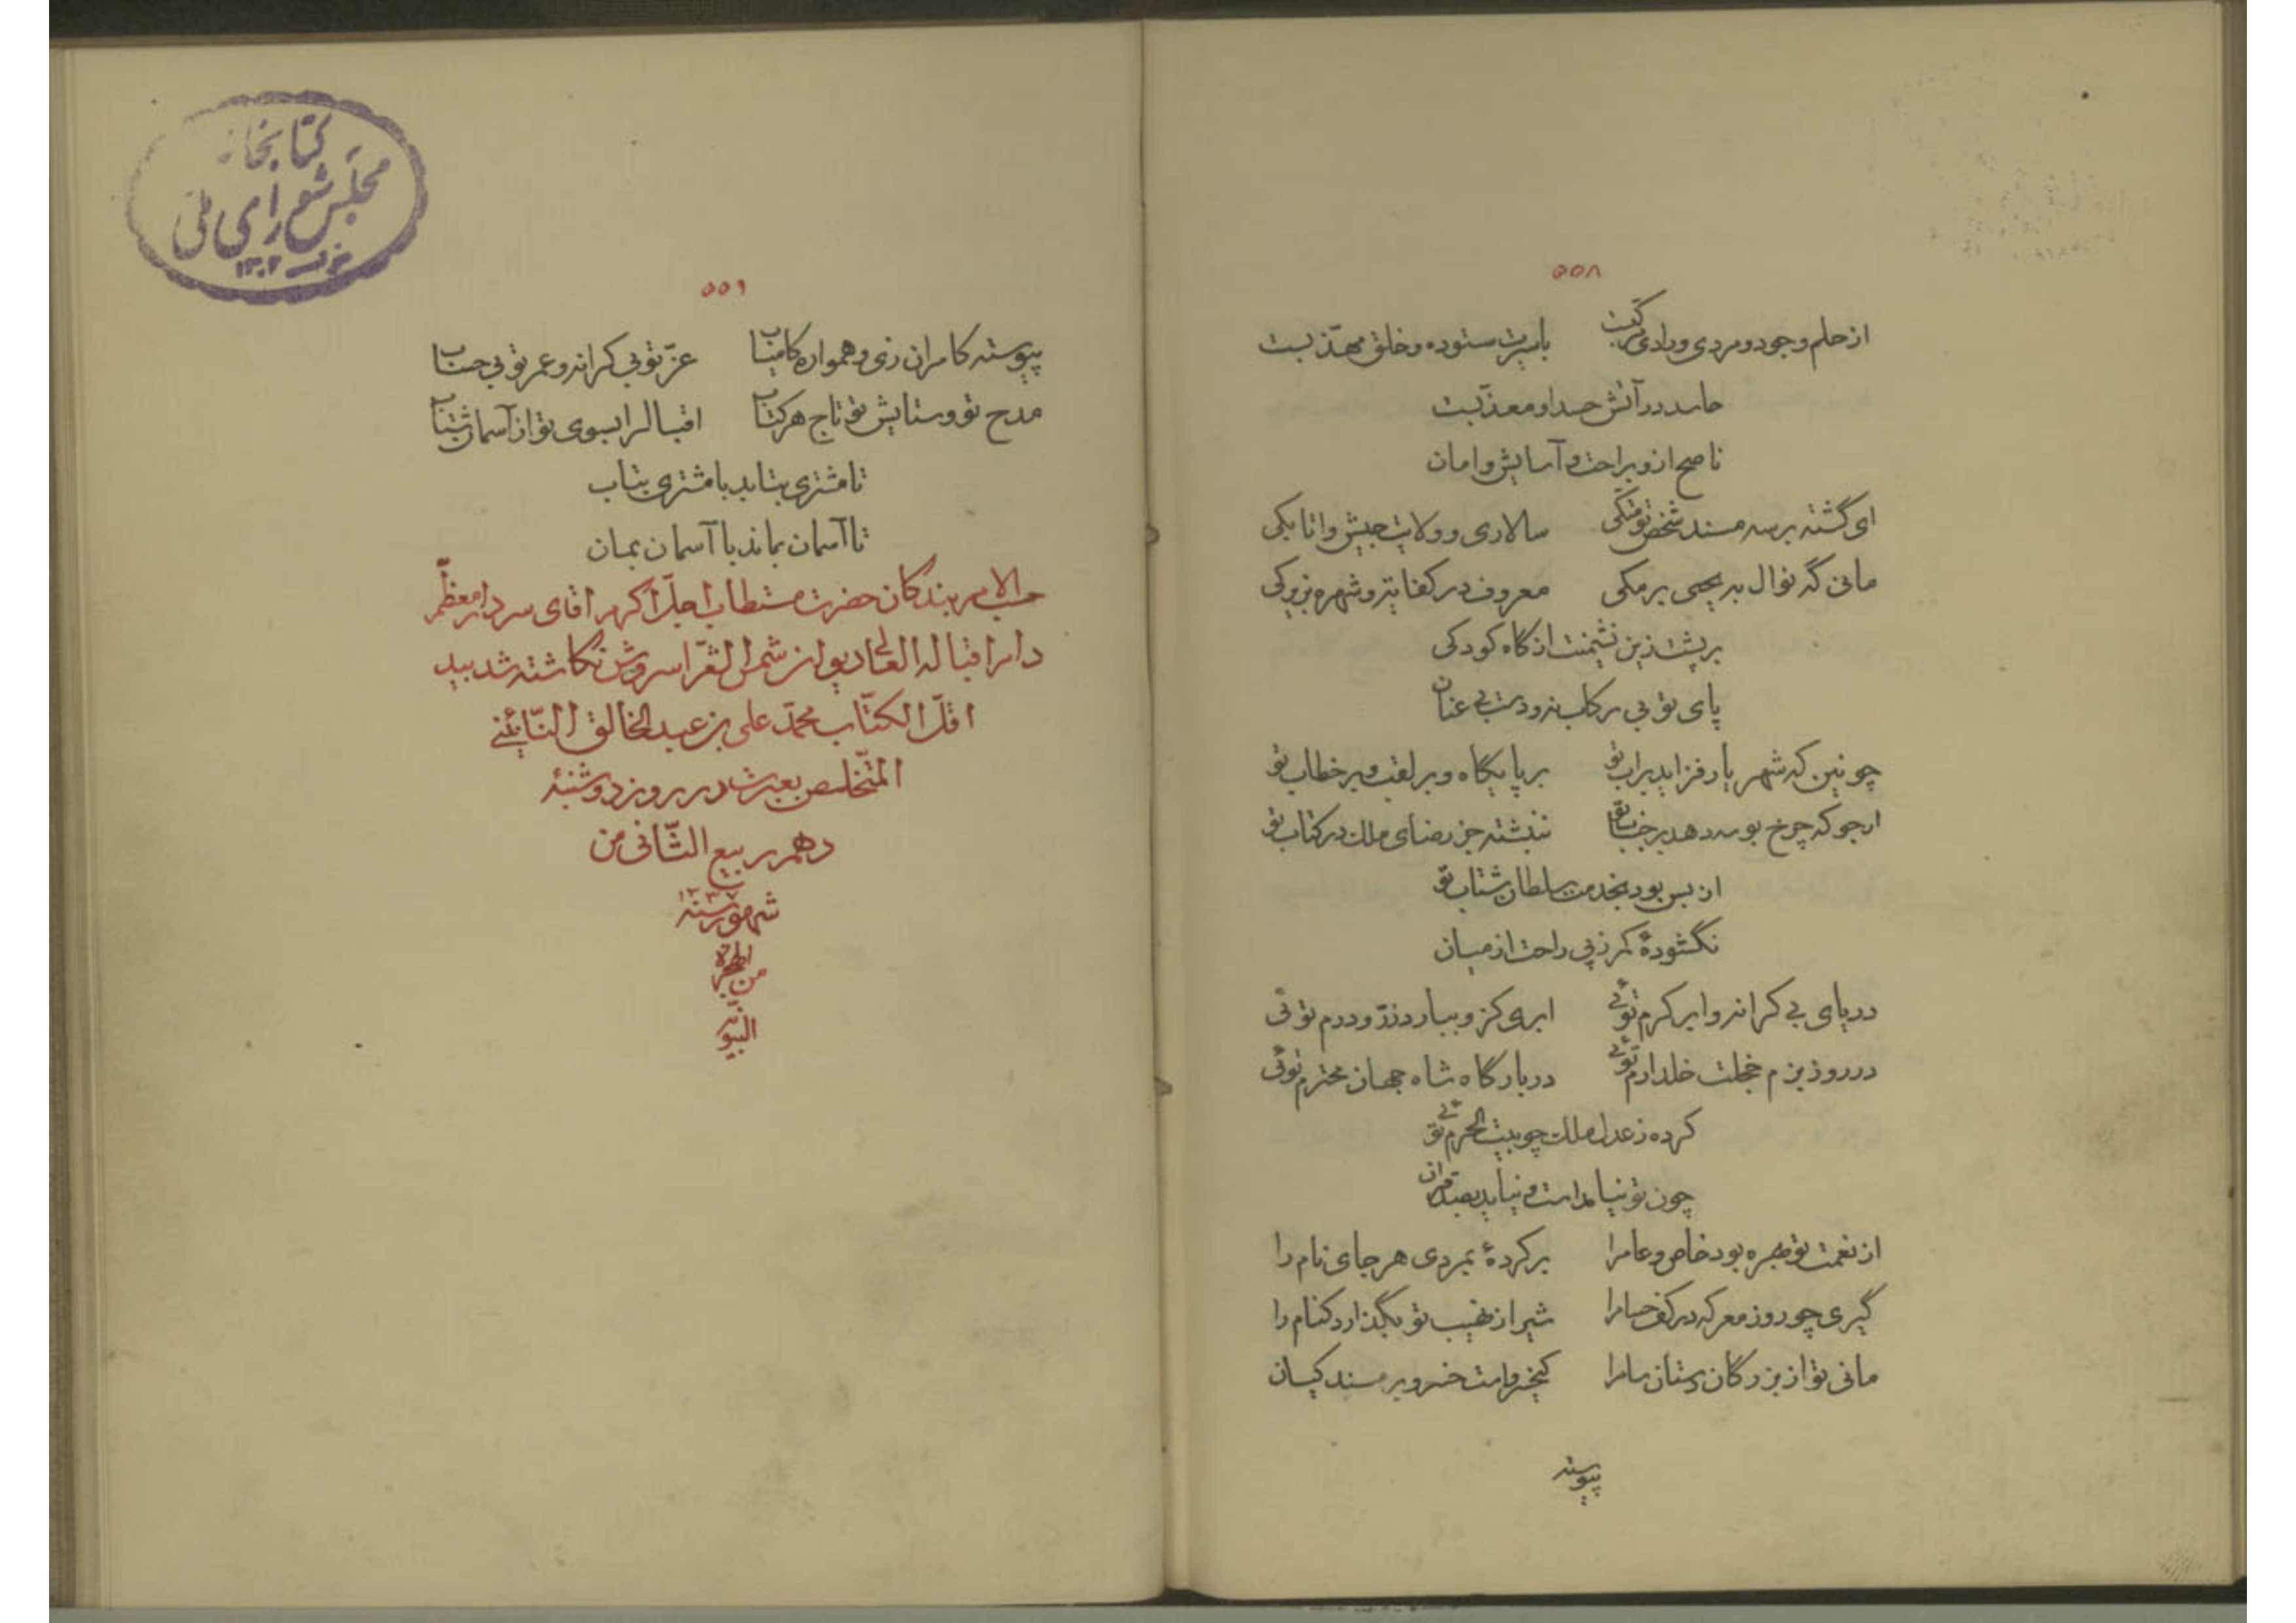 ۵۵۸
از حلم و جود و مردی و رادی مرکبست با سیرت ستوده و خلق مهذّبست
حاسد در آتش حسد او معذّبست
ناصح ازو براحت و آسایش و امان
ای گشته بر سه مسند شخص تو متکی سالاری و ولایت جیش و اتابکی
مانی گه نوال به یحیی برمکی معروف در کفایت و شهره بزیرکی
بر پشت زین نشیمنت از گاه کودکی
پای تو بی رکاب نه و دست بی عنان
چونین که شهریار فزاید بر آب تو بر پایگاه و بر لقب و بر خطاب تو
ارجو که چرخ بوسه دهد بر جناب تو ننبشته جز رضای ملک در کتاب تو
از بس بود بخدمت سلطان شتاب تو
نگشودهٔ کمر ز پی راحت از میان
دریای بی کرانه و ابر کرم توئی ابری کزو ببارد زرّ و درم توئی
در روز بزم خجلت خلد ارم توئی در بارگاه شاه جهان محترم توئی
کرده ز عدل ملک چو بیت الحرم توئی
چون تو نیامدست و نیاید بصد قران
از نعمت تو بهره بود خاص و عامرا بر کردهٔ بمردی هر جای نام را
گیری چو روز معرکه در کف حسامرا شیر از نهیب تو بگذارد کنام را
مانی تو از بزرگان دستان سامرا کیخسرو است خسرو بر مسند کیان
پیوسته
۵۵۹
پیوسته کامران زی و همواره کامیاب عزّ تو بی کرانه و عمر تو بی حساب
مدح تو و ستایش تو تاج هر کتاب اقبالرا بسوی تو از آسمان شتاب
تا مشتری بتابد با مشتری بتاب
تا آسمان بماند با آسمان بمان
حسب الامر بندگان حضرت مستطاب اجلّ اکرم اقای سردار معظّم
دام اقباله العالی دیوان شمس الشّعرا سروش نگاشته شد بید
اقلّ الکتّاب محمّد علی بن عبد الخالق النّائینی
المتخلّص بعبرت در روز دوشنبهٔ
دهم ربیع الثّانی من
شهور سنهٔ ۱۳۳۷
من الهجرة
النبویّه
کتابخانه
مجلس شورای ملی
۱۳۰۲